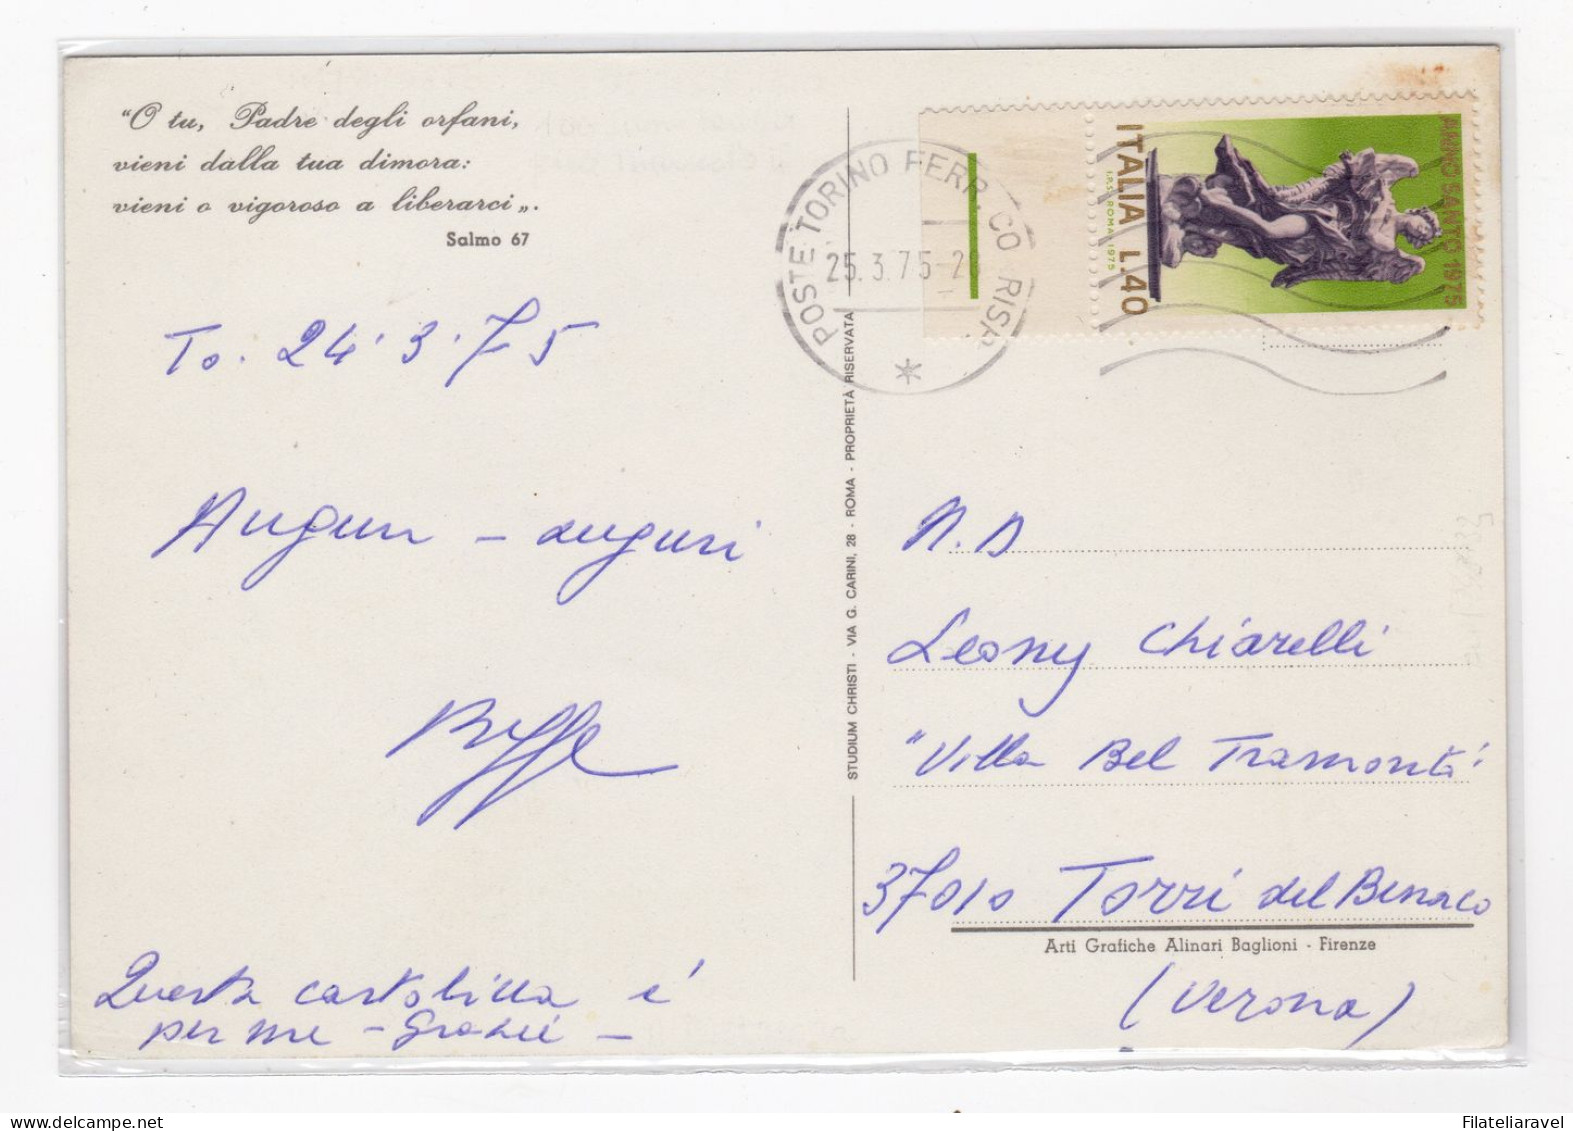 "O tu, Padre degli orfani,
vieni dalla tua dimora:
vieni o vigoroso a liberarci„.
Salmo 67
To. 24·3·75
Auguri - auguri
Questa cartolina è
per me - Grazie -
STUDIUM CHRISTI - VIA G. CARINI, 28 - ROMA - PROPRIETÀ RISERVATA
POSTE TORINO FERR. CO RISP.
25.3.75-2
ITALIA L.40
I.P.S. ROMA 1975
ANNO SANTO 1975
N.D
Leony Chiarelli
"Villa Bel Tramonto"
37010 Torri del Benaco
Arti Grafiche Alinari Baglioni - Firenze
(Verona)
Filateliaravel